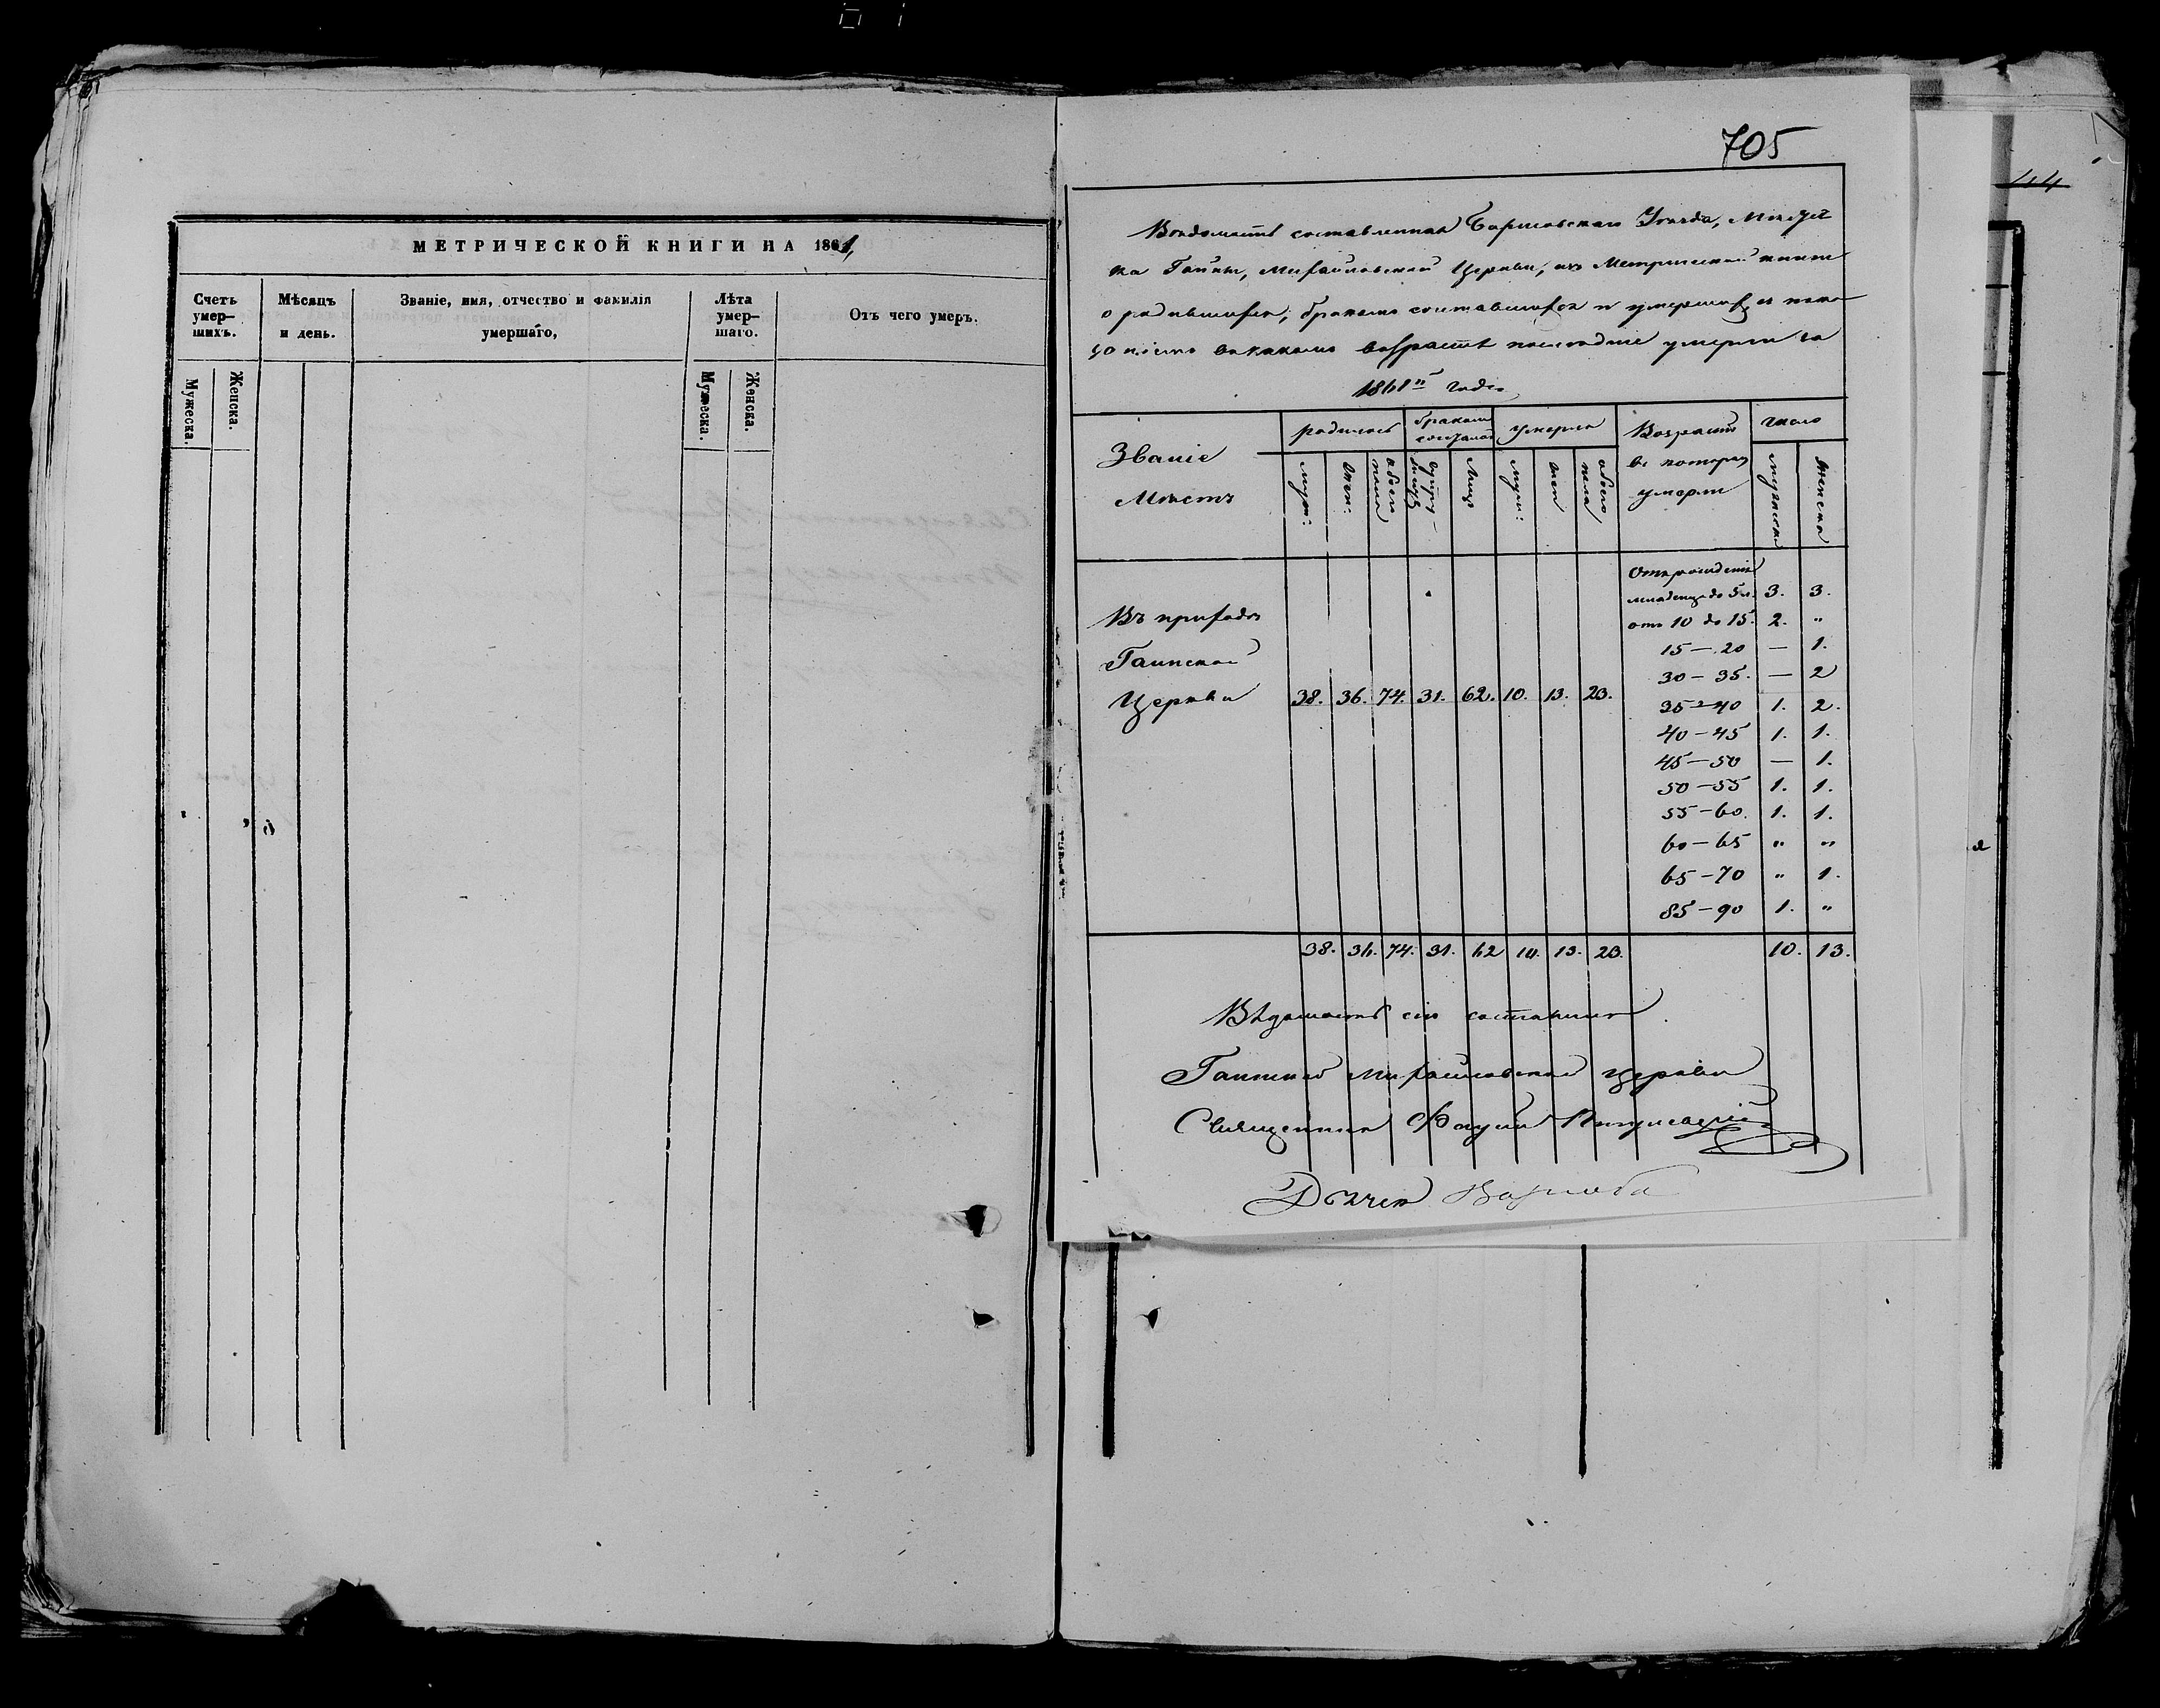 705
44
МЕТРИЧЕСКОЙ КНИГИ НА 1861,
Счетъ умер-шихъ.
Мѣсяцъ и день.
Званіе, имя, отчество и фамилія умершаго,
Лѣта умер-шаго.
Отъ чего умеръ.
Мужеска.
Женска.
Мужеска.
Женска.
Вѣдомость составленная Борисовскаго Уѣзда, Мѣстеч
ка Гайны, Михайловской Церкви, изъ Метрической книги
о родившихся, бракомъ сочетавшихся и умершихъ съ пока
1861го года
Званіе Мѣстъ
родилось
бракомъ
умерло
Возрастъ въ которомъ умерли
число
муж:
жен:
обоего пола
лицъ
муж:
жен
обоего пола
мужеска
женска
Отъ рожденія
младенца до 5 л. 3. 3.
отъ 10 до 15. 2. "
15 — 20 — 1.
30 — 35. — 2
35 — 40 1. 2.
40 — 45 1. 1.
45 — 50 — 1.
50 — 55 1. 1.
55 — 60. 1. 1.
60 — 65 " "
65 — 70 " 1.
85 — 90 1. "
Въ приходѣ
Гаинской
Церкви 38. 36. 74. 31. 62. 10. 13. 23.
38. 36. 74. 31. 62 10. 13. 23. 10. 13.
Вѣдомость сію составилъ
Гаинской Михайловской Церкви
Священникъ